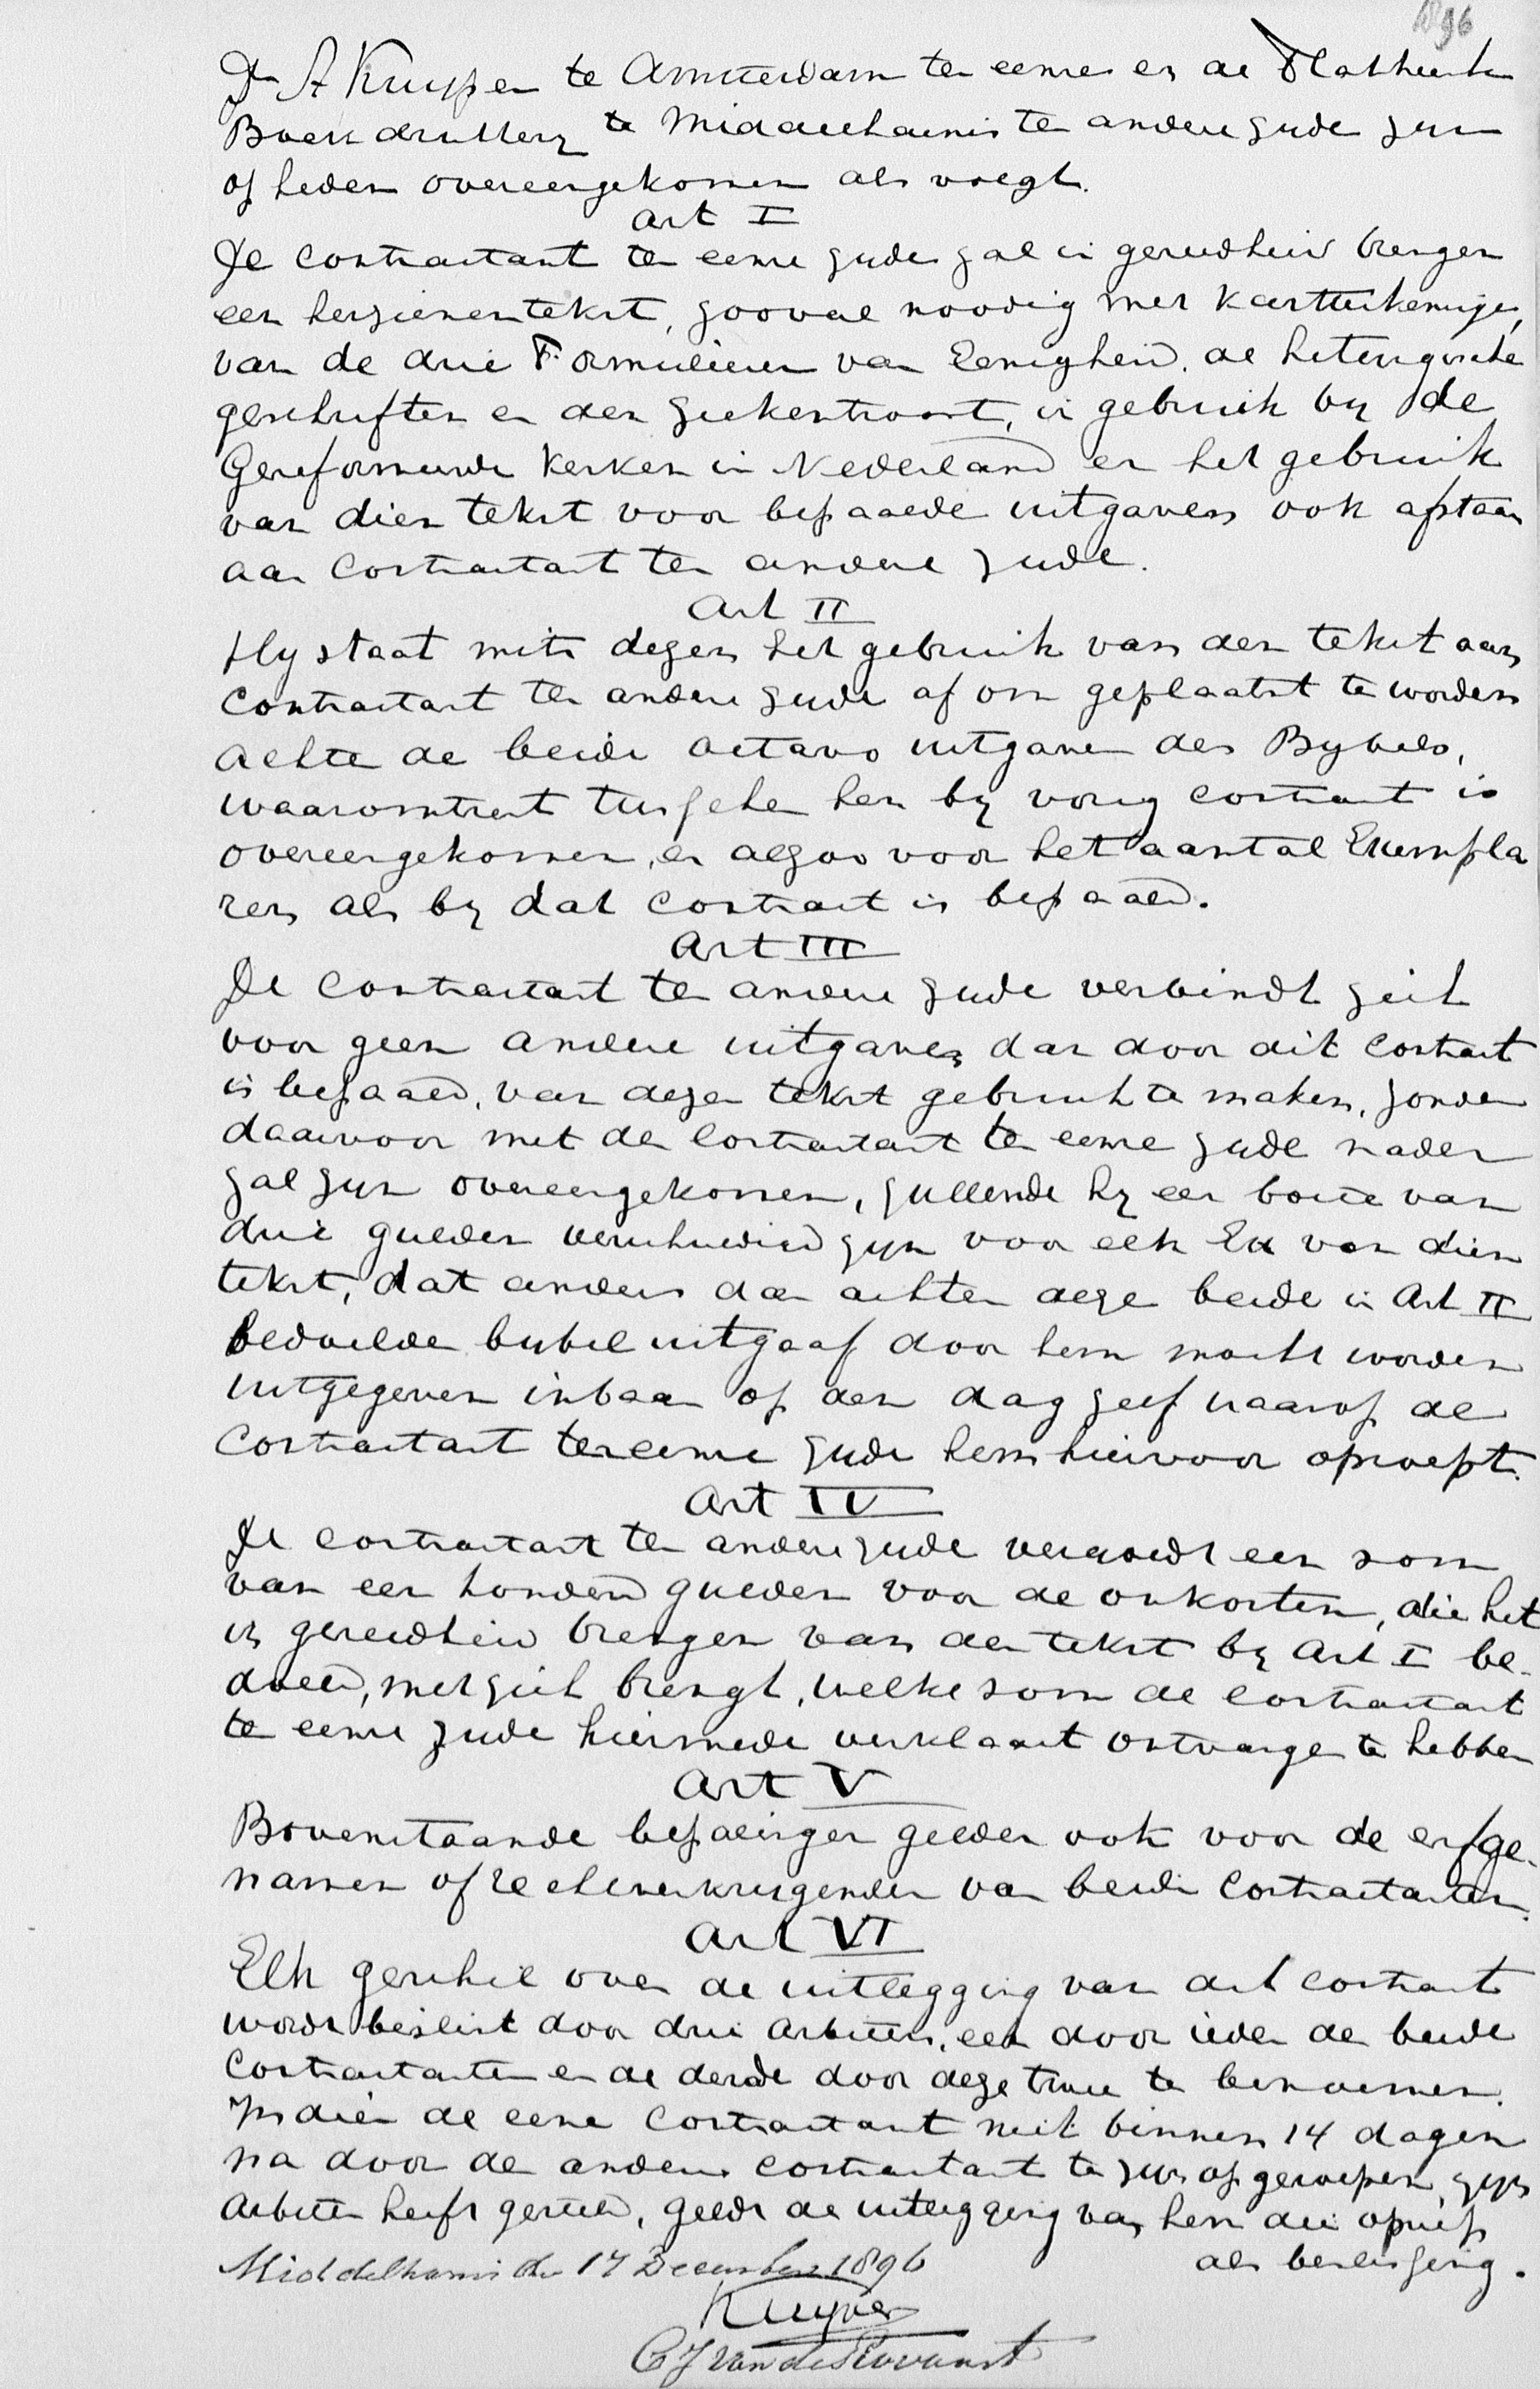 1896
Dr A Kuyper te Amsterdam ter eenre en de Flakkeesche
Boekdrukkerij te Middelharnis ter andere zijde zijn
op heden overeengekomen als volgt.
Art I
De contractant ter eenre zijde zal in gereedheid brengen
een herzienen tekst, zooveel noodig met kantteekeningen,
van de drie Formulieren van Eenigheid, de liturgische
geschriften en den Ziekentroost, in gebruik bij de
Gereformeerde Kerken in Nederland en het gebruik
van dien tekst voor bepaalde uitgaven ook afstaan
aan Contractant ter andere zijde.
Art II
Hij staat mits dezen het gebruik van den tekst aan
Contractant ter andere zijde af om geplaatst te worden
achter de beide octavo uitgaven des Bijbels,
waaromtrent tusschen hen bij vorig contract is
overeengekomen, en alzoo voor het aantal Exempla
ren als bij dat contract is bepaald.
Art III
De Contractant ter andere zijde verbindt zich
voor geen andere uitgaven dan door dit contract
is bepaald, van dezen tekst gebruik te maken, zonder
daarvoor met den Contractant ter eenre zijde nader
zal zijn overeengekomen, zullende hij een boete van
drie gulden verschuldigd zijn voor elk Ex van dien
tekst, dat anders dan achter deze beide in Art II
bedoelde bijbeluitgaaf door hem mocht worden
uitgegeven inbaar op den dag zelf waarop de
Contractant ter eenre zijde hem hiervoor oproept.
Art IV
De contractant ter andere zijde vergoedt een som
van een honderd gulden voor de onkosten, die het
in gereedheid brengen van den tekst bij Art I be-
doeld, met zich brengt, welke som de contractant
ter eenre zijde hiermede verklaart ontvangen te hebben
Art V
Bovenstaande bepalingen gelden ook voor de erfge-
namen of rechtverkrijgenden van beide Contractanten.
Art VI
Elk geschil over de uitlegging van dit contract
wordt beslist door drie arbiters, een door ieder de beide
Contractanten en de derde door deze twee te benoemen.
Indien de eene Contractant niet binnen 14 dagen
na door de andere contractant te zijn opgeroepen, zijn
arbiter heeft gesteld, geldt de uitlegging van hem die opriep
als beslissing.
Middelharnis den 17 December 1896
Kuyper